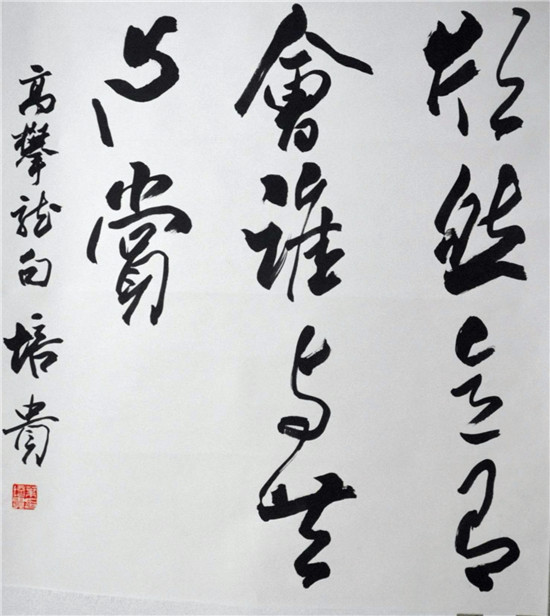 欣然意有
會誰与共
心賞
高攀龍句 培貴